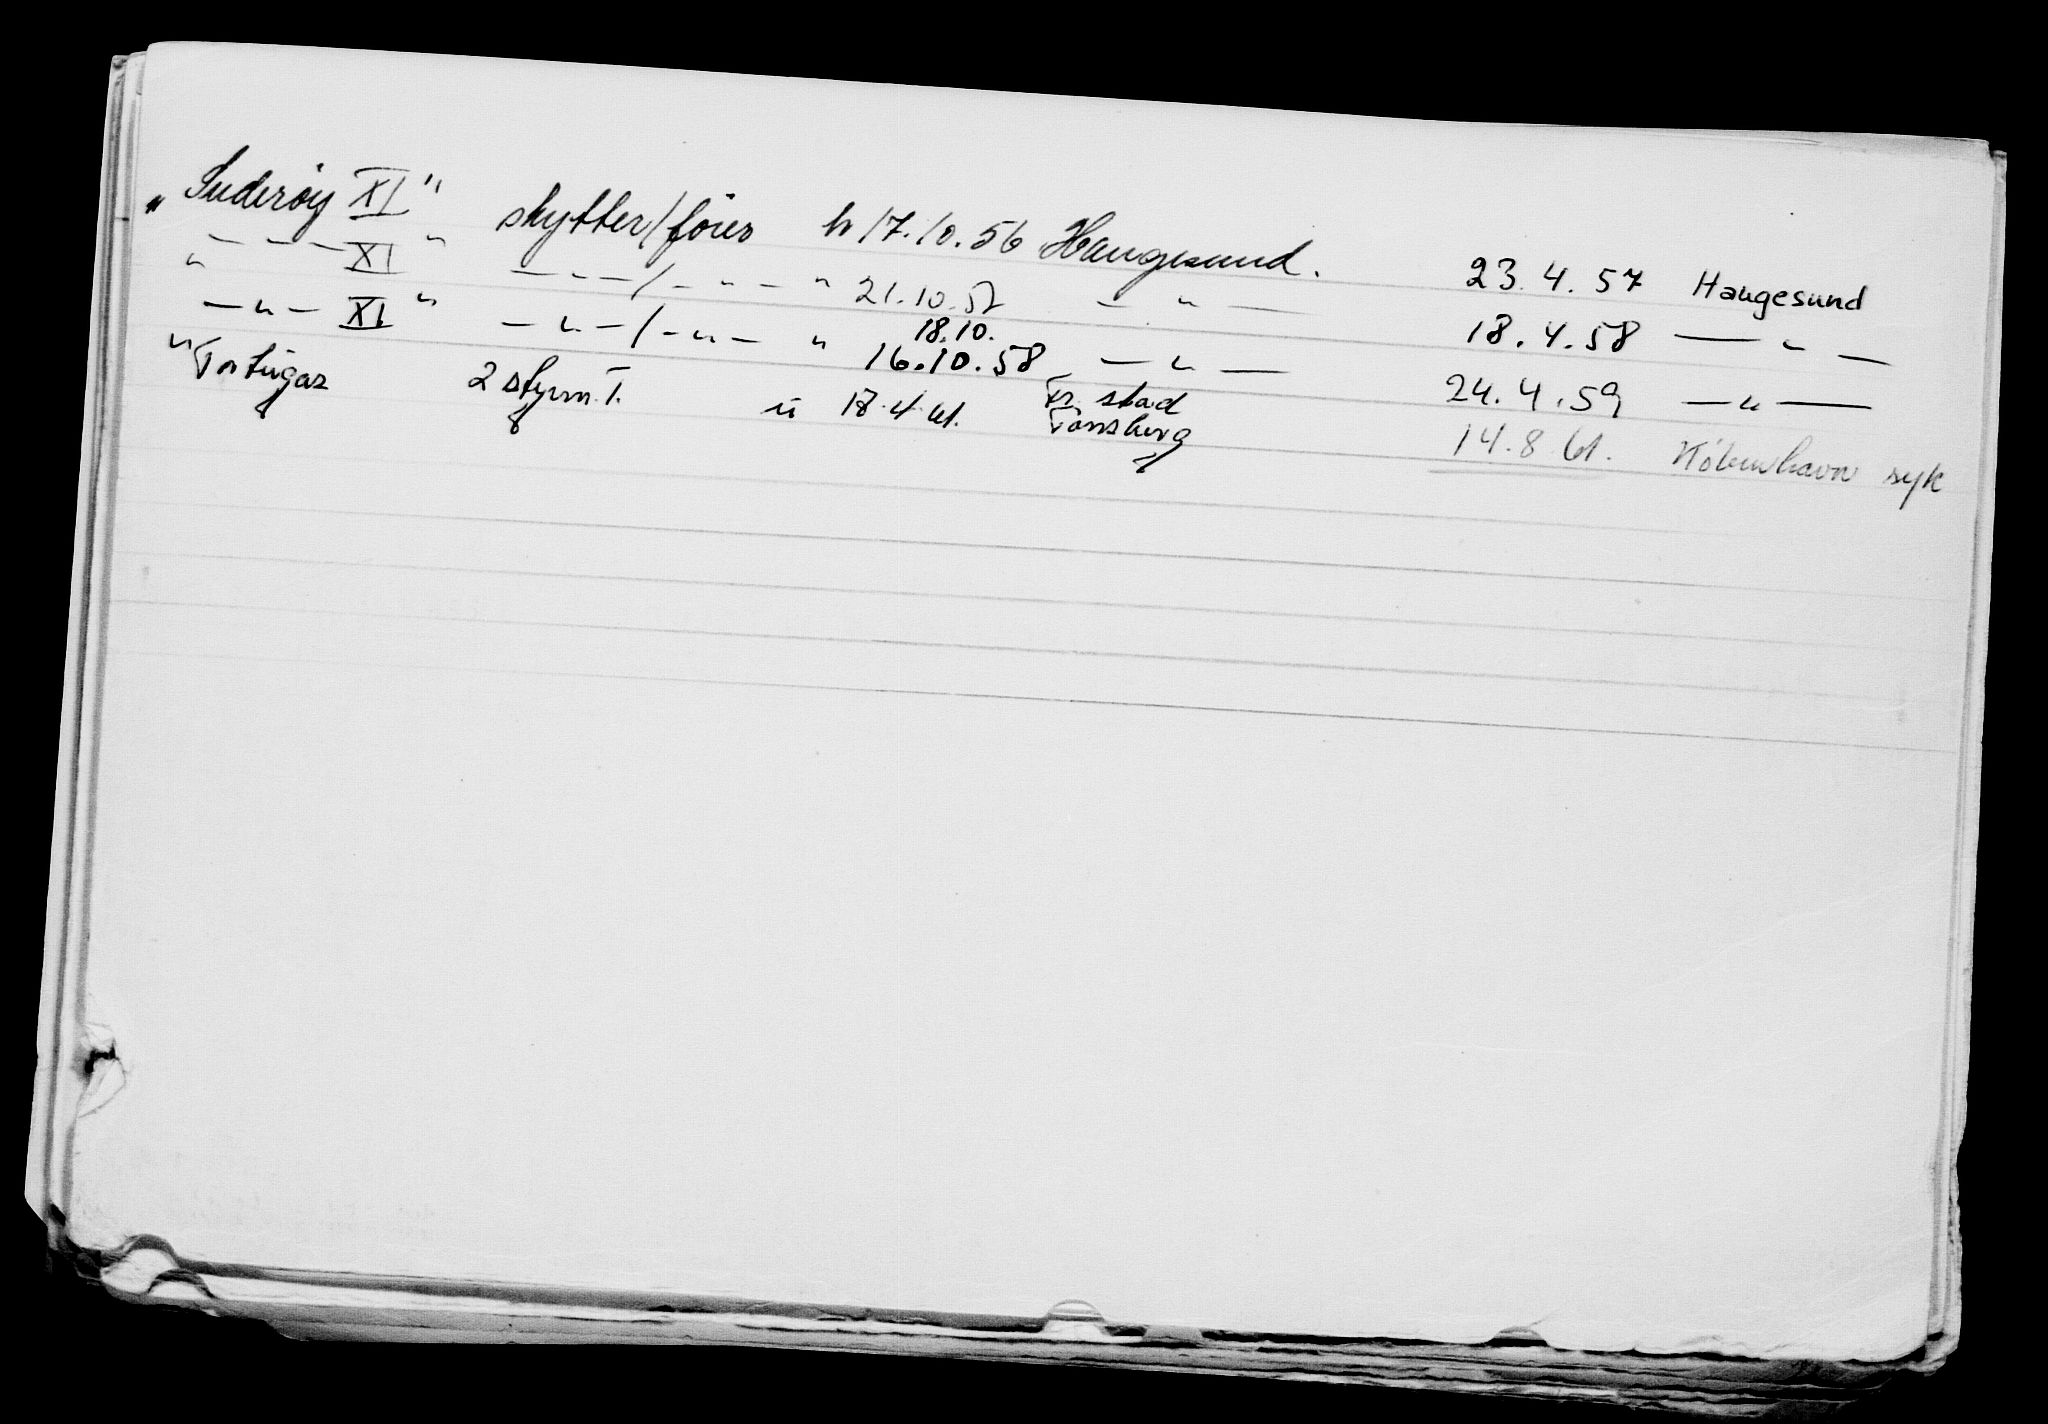 „Suderøy XI" skytter/fører h 17.10.56 Haugesund. 23.4.57 Haugesund
" — — — XI " — - — / - " — " 21.10.57 — " — 18.4.58 — " —
— " — XI " — " — / - " — " 18.10. 16.10.58 — " — 24.4.59 — " —
" Tortugas 2 styrm T. u 18.4.61. Fr. stad Tønsberg 14.8.61. København syk